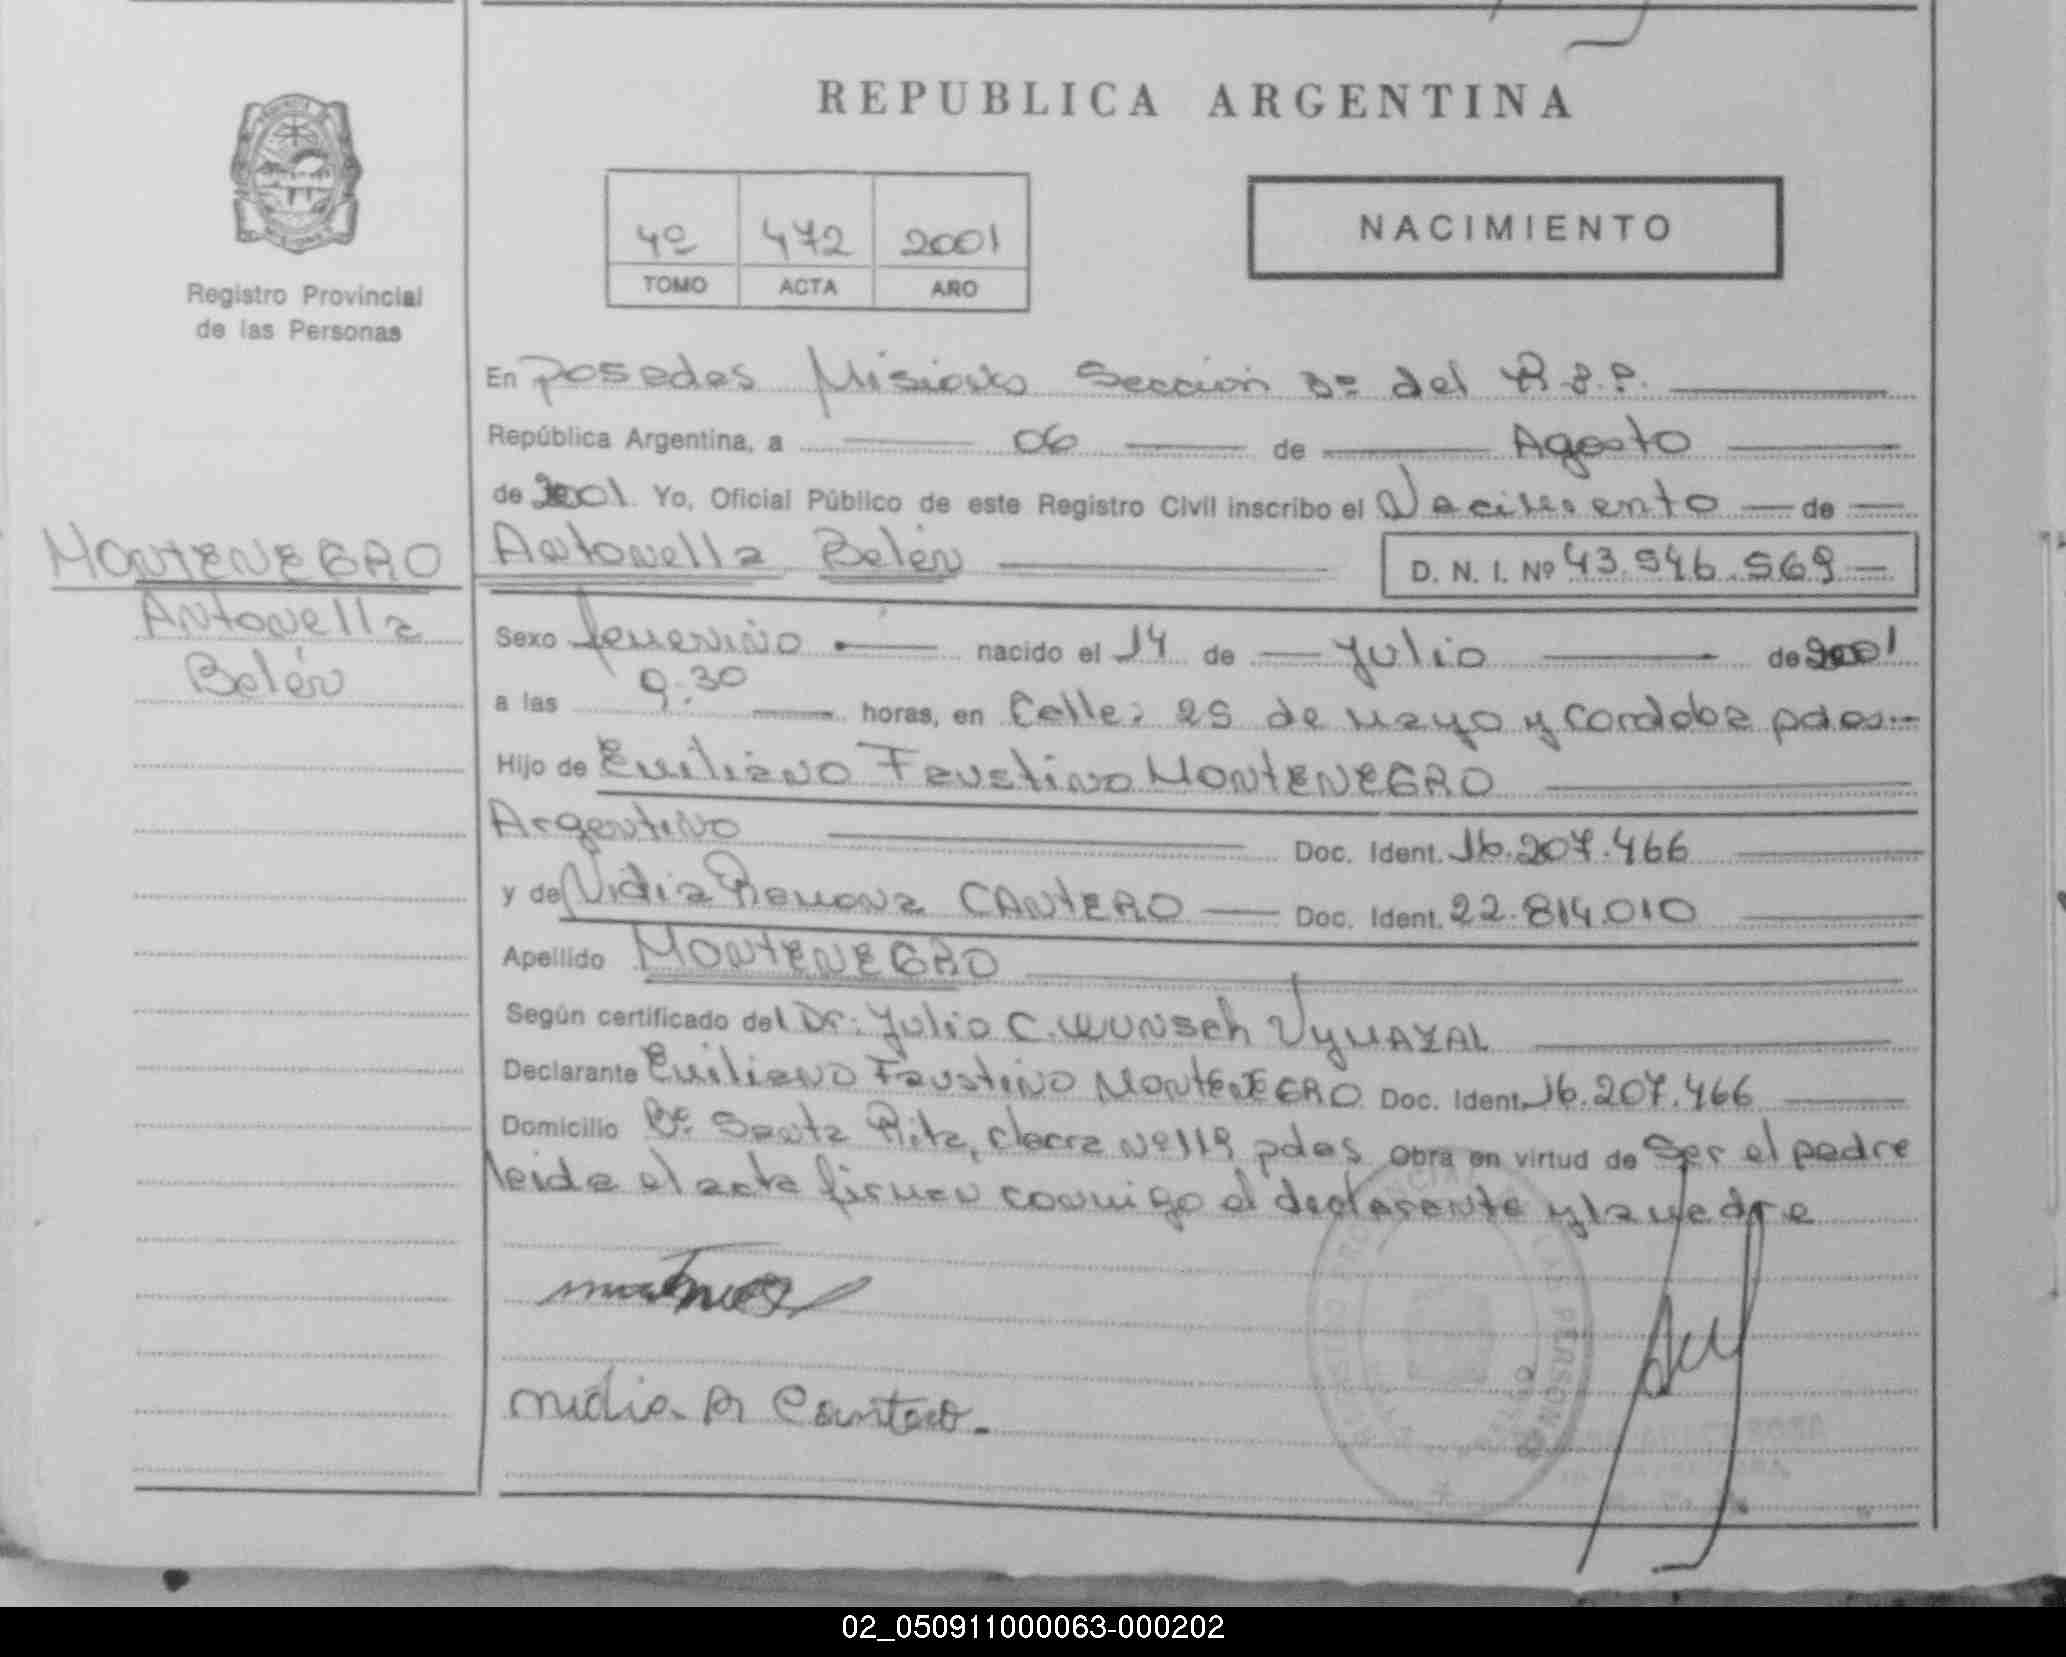 REPUBLICA ARGENTINA
4º 472 2001
TOMO ACTA AÑO
NACIMIENTO
Registro Provincial
de las Personas
En Posadas Misiones Sección 3º del R.P.P.
República Argentina, a 06 de Agosto
de 2001. Yo, Oficial Público de este Registro Civil inscribo el Nacimiento de
MONTENEGRO
Antonella
Belén
Antonella Belén D. N. I. Nº 43.546.569
Sexo femenino nacido el 14 de Julio de 2001
a las 9:30 horas, en Calle: 25 de mayo y Cordoba pdas.
Hijo de Emiliano Faustino MONTENEGRO
Argentino Doc. Ident. 16.207.466
y de Nidia Ramona CANTERO Doc. Ident. 22.814.010
Apellido MONTENEGRO
Según certificado del Dr: Julio C. WUNSCH VyMAZAL
Declarante Emiliano Faustino MONTENEGRO Doc. Ident. 16.207.466
Domicilio Bº. Santa Rita, chacra Nº119 pdas Obra en virtud de ser el padre
leida el acta firman conmigo el declarante y la madre
nidia R Cantero.
02_050911000063-000202